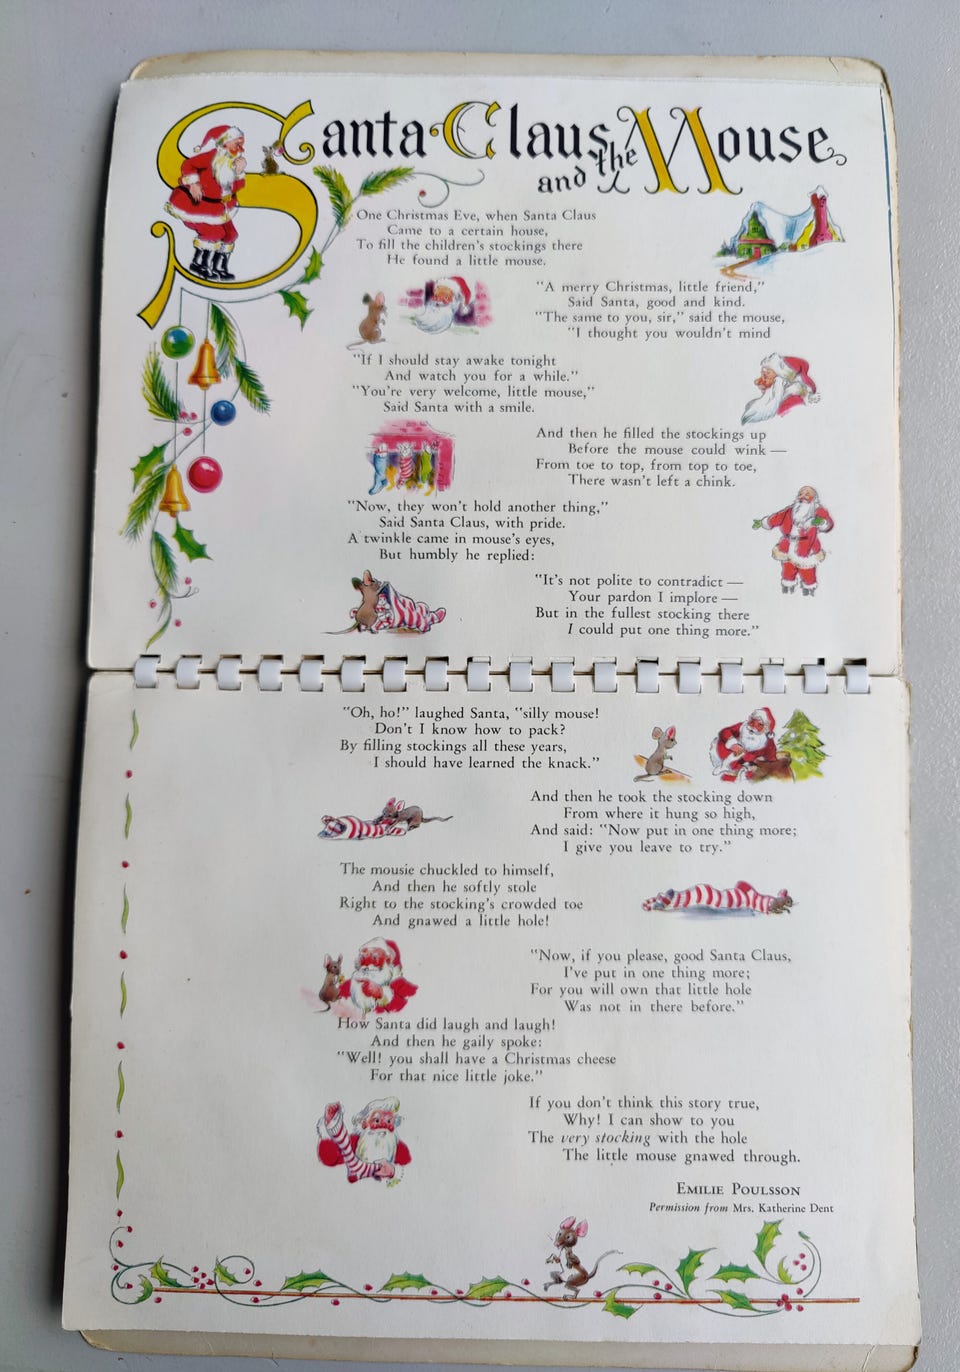 Santa Claus and the Mouse
One Christmas Eve, when Santa Claus
Came to a certain house,
To fill the children's stockings there
He found a little mouse.
"A merry Christmas, little friend,"
Said Santa, good and kind.
"The same to you, sir," said the mouse,
"I thought you wouldn't mind
"If I should stay awake tonight
And watch you for a while."
"You're very welcome, little mouse,"
Said Santa with a smile.
And then he filled the stockings up
Before the mouse could wink —
From toe to top, from top to toe,
There wasn't left a chink.
"Now, they won't hold another thing,"
Said Santa Claus, with pride.
A twinkle came in mouse's eyes,
But humbly he replied:
"It's not polite to contradict —
Your pardon I implore —
But in the fullest stocking there
I could put one thing more."
"Oh, ho!" laughed Santa, "silly mouse!
Don't I know how to pack?
By filling stockings all these years,
I should have learned the knack."
And then he took the stocking down
From where it hung so high,
And said: "Now put in one thing more;
I give you leave to try."
The mousie chuckled to himself,
And then he softly stole
Right to the stocking's crowded toe
And gnawed a little hole!
"Now, if you please, good Santa Claus,
I've put in one thing more;
For you will own that little hole
Was not in there before."
How Santa did laugh and laugh!
And then he gaily spoke:
"Well! you shall have a Christmas cheese
For that nice little joke."
If you don't think this story true,
Why! I can show to you
The very stocking with the hole
The little mouse gnawed through.
EMILIE POULSSON
Permission from Mrs. Katherine Dent